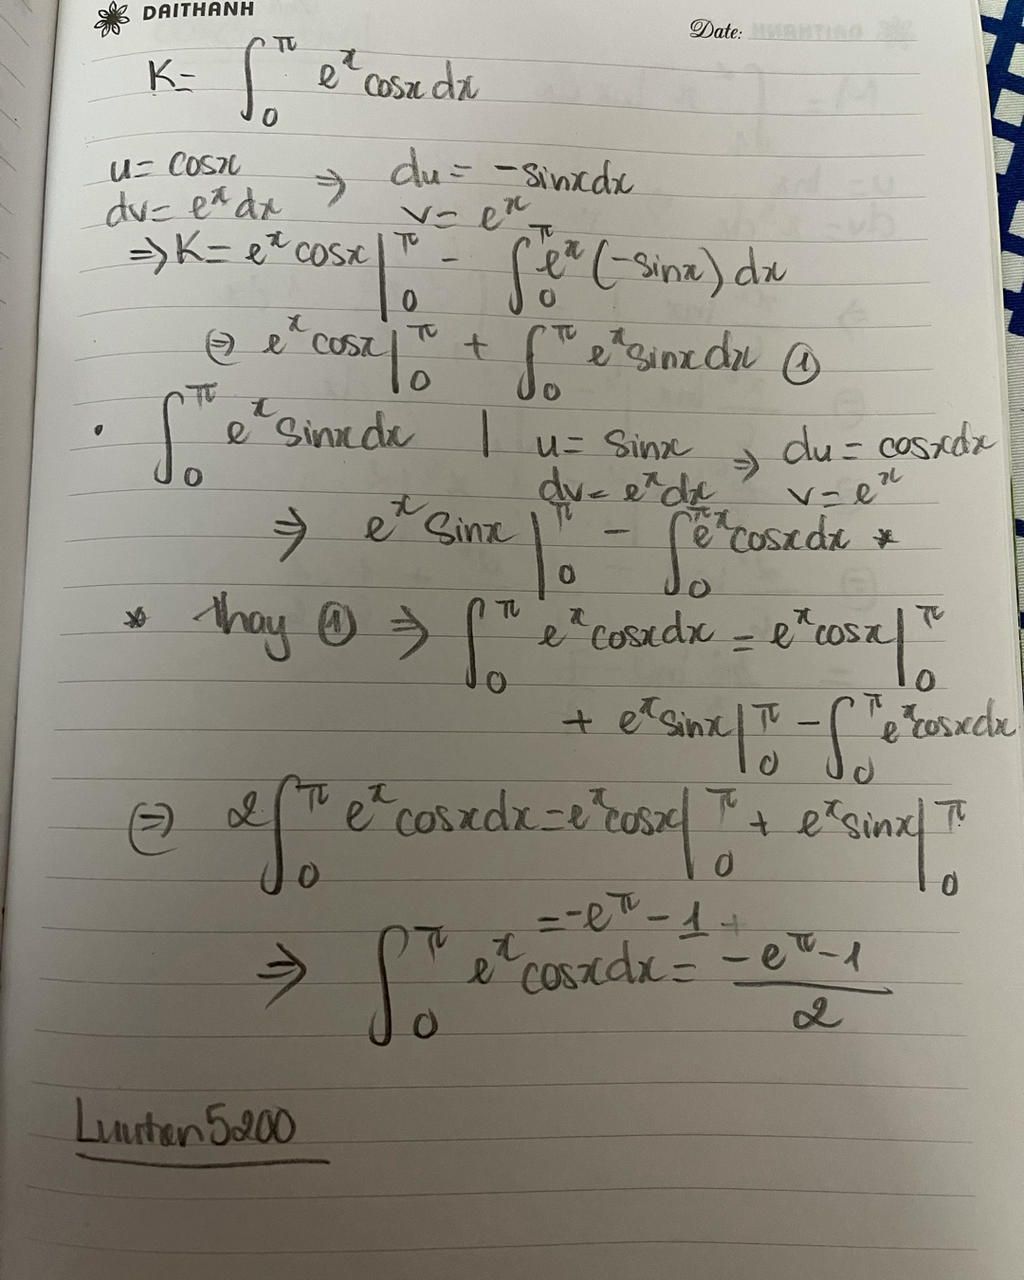 DAITHANH
Date:
K= ∫₀^π eˣ cosx dx
u= cosx ⇒ du= -sinxdx
dv= eˣ dx v= eˣ
⇒ K= eˣ cosx |₀^π - ∫₀^π eˣ (-sinx) dx
⇔ eˣ cosx |₀^π + ∫₀^π eˣ sinx dx ①
• ∫₀^π eˣ sinx dx | u= sinx ⇒ du= cosxdx
dv= eˣdx v= eˣ
⇒ eˣ sinx |₀^π - ∫₀^π eˣ cosxdx *
* thay ① ⇒ ∫₀^π eˣ cosxdx = eˣ cosx |₀^π
+ eˣ sinx |₀^π - ∫₀^π eˣ cosxdx
⇔ 2∫₀^π eˣ cosxdx = eˣ cosx |₀^π + eˣ sinx |₀^π
= -e^π - 1
⇒ ∫₀^π eˣ cosxdx = (-e^π - 1)/2